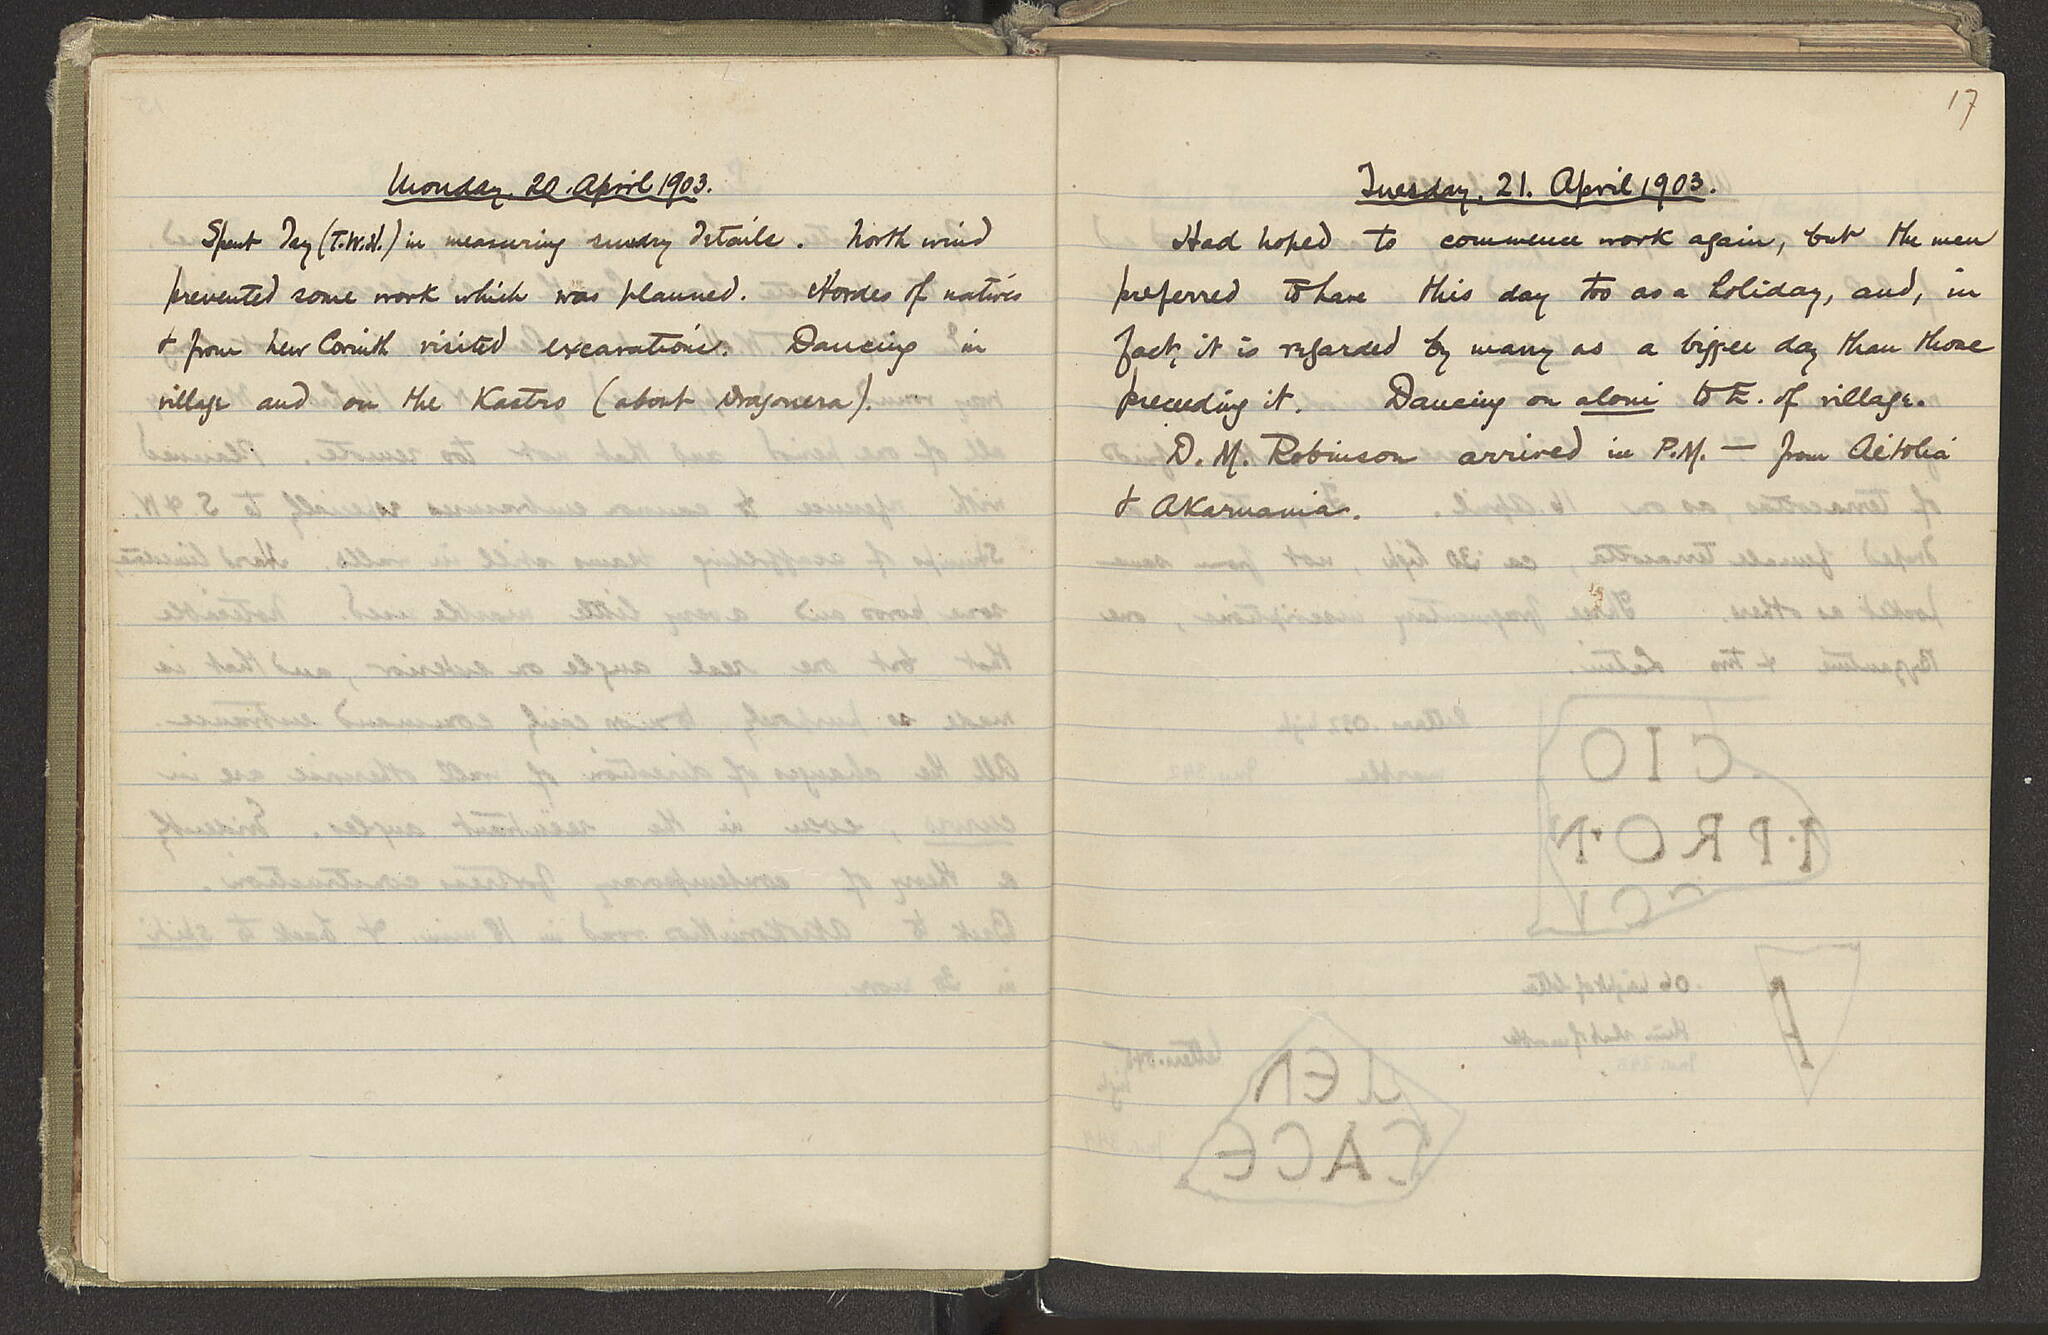 Monday, 20. April 1903.
Spent day (T.W.H.) in measuring sundry details. North wind
prevented some work which was planned. Hordes of natives
& from New Corinth visited excavations. Dancing in
village and on the Kastro (about Dragonera).
17
Tuesday, 21. April 1903.
Had hoped to commence work again, but the men
preferred to have this day too as a holiday, and, in
fact, it is regarded by many as a bigger day than those
preceding it. Dancing on aloni to E. of village.
D. M. Robinson arrived in P.M. — from Aitolia
& Akarnania.